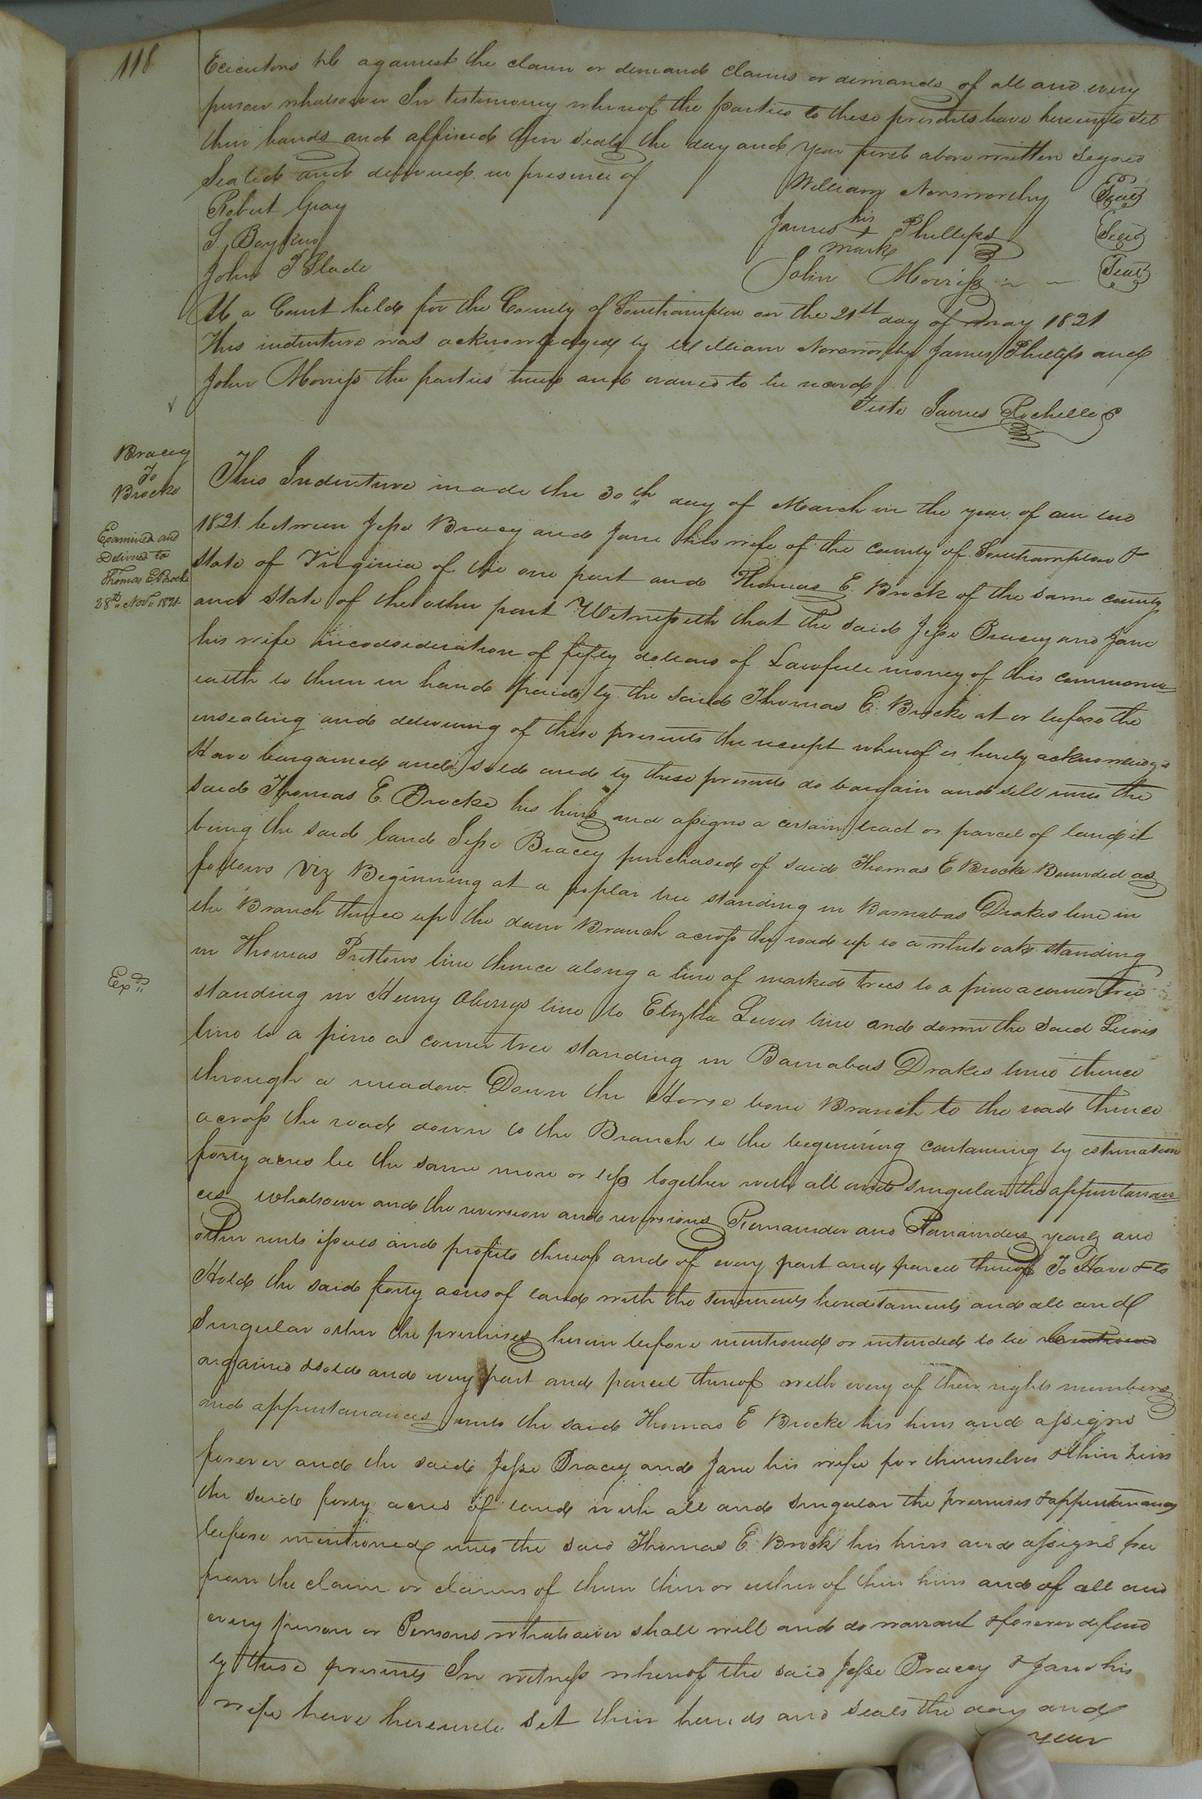 118
Executors &c against the claim or demand claims or demands of all and every
person whatsoever In testimony whereof the parties to these presents have hereunto set
their hands and affixed their seals the day and year first above written Signed
Sealed and delivered in presence of
William Norsworthy Seal
Robert Gray
James his Phillips Seal
mark
John T Slade
John Morriss Seal
At a Court held for the County of Southampton on the 21st day of May 1821
This indenture was acknowledged by William Norsworthy James Phillips and
John Morriss the parties thereto and ordered to be record
Teste James Rochelle C
Bracey
To
Brocke
Examined and
Delivered to
Thomas E Brock
28th Nov. 1821
This Indenture made the 30th day of March in the year of our Lord
1821 between Jesse Bracey and Jane his wife of the county of Southampton &
State of Virginia of the one part and Thomas E. Brock of the same county
and State of the other part Witnesseth that the said Jesse Bracey and Jane
his wife inconsideration of fifty dollars of Lawfull money of this common
wealth to them in hand paid by the said Thomas E. Brocke at or before the
ensealing and delivering of these presents the receipt whereof is hereby acknowledge
Have bargained and sold and by these presents do bargain and sell unto the
said Thomas E Brocke his heirs and assigns a certain tract or parcel of land it
being the said land Jesse Bracey purchased of said Thomas E Brocke Bounded as
follows Viz Beginning at a poplar tree standing in Barnabas Drakes line in
the Branch thence up the dam Branch across the road up to a white oak standing
in Thomas Pretlows line thence along a line of marked trees to a pine a corner tree
Exd
standing in Henry line to Lewis line and down the said Lewis
line to a pine a corner tree standing in Barnabas Drakes line thence
through a meadow Down the Horse bone Branch to the road thence
across the road down to the Branch to the beginning containing by estimation
forty acres be the same more or less together with all and singular the appurtenan
ces whatsoever and the reversion and reversions Remainder and Remainders yearly and
other rents issues and profits thereof and of every part and parcel thereof To Have & to
Hold the said forty acres of land with the tenements hereditaments and all and
Singular other the premises herein before mentioned or intended to be
argained & sold and every part and parcel thereof with every of their rights members
and appurtenances unto the said Thomas E Brocke his heirs and assigns
forever and the said Jesse Bracey and Jane his wife for themselves & their heirs
the said forty acres of land with all and singular the premises & appurtenances
before mentioned unto the said Thomas E. Brock his heirs and assigns free
from the claim or claims of them their or either of their heirs and of all and
every person or Persons whatsoever shall will and do warrant & forever defend
by these presents In witness whereof the said Jesse Bracey & Jane his
wife have hereunto set their hands and seals the day and
year